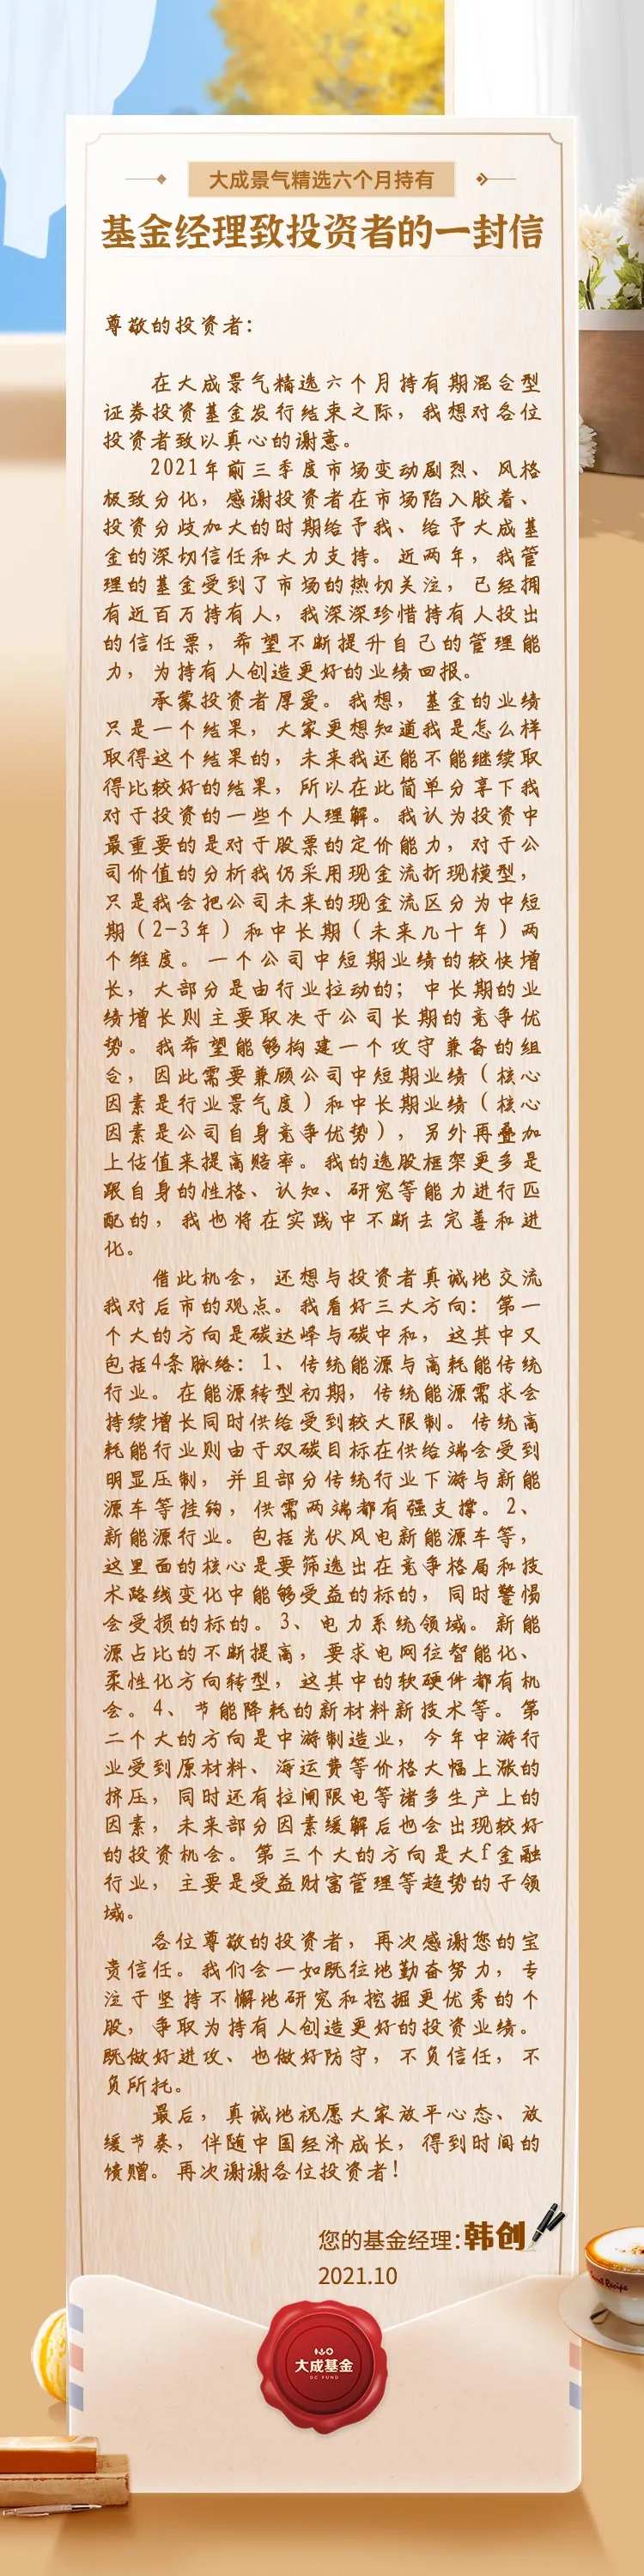 大成景气精选六个月持有
基金经理致投资者的一封信
尊敬的投资者：
在大成景气精选六个月持有期混合型
证券投资基金发行结束之际，我想对各位
投资者致以真心的谢意。
2021年前三季度市场变动剧烈、风格
极致分化，感谢投资者在市场陷入胶着、
投资分歧加大的时期给予我、给予大成基
金的深切信任和大力支持。近两年，我管
理的基金受到了市场的热切关注，已经拥
有近百万持有人，我深深珍惜持有人投出
的信任票，希望不断提升自己的管理能
力，为持有人创造更好的业绩回报。
承蒙投资者厚爱。我想，基金的业绩
只是一个结果，大家更想知道我是怎么样
取得这个结果的，未来我还能不能继续取
得比较好的结果，所以在此简单分享下我
对于投资的一些个人理解。我认为投资中
最重要的是对于股票的定价能力，对于公
司价值的分析我仍采用现金流折现模型，
只是我会把公司未来的现金流区分为中短
期（2-3年）和中长期（未来几十年）两
个维度。一个公司中短期业绩的较快增
长，大部分是由行业拉动的；中长期的业
绩增长则主要取决于公司长期的竞争优
势。我希望能够构建一个攻守兼备的组
合，因此需要兼顾公司中短期业绩（核心
因素是行业景气度）和中长期业绩（核心
因素是公司自身竞争优势），另外再叠加
上估值来提高赔率。我的选股框架更多是
跟自身的性格、认知、研究等能力进行匹
配的，我也将在实践中不断去完善和进
化。
借此机会，还想与投资者真诚地交流
我对后市的观点。我看好三大方向：第一
个大的方向是碳达峰与碳中和，这其中又
包括4条脉络：1、传统能源与高耗能传统
行业。在能源转型初期，传统能源需求会
持续增长同时供给受到较大限制。传统高
耗能行业则由于双碳目标在供给端会受到
明显压制，并且部分传统行业下游与新能
源车等挂钩，供需两端都有强支撑。2、
新能源行业。包括光伏风电新能源车等，
这里面的核心是要筛选出在竞争格局和技
术路线变化中能够受益的标的，同时警惕
会受损的标的。3、电力系统领域。新能
源占比的不断提高，要求电网往智能化、
柔性化方向转型，这其中的软硬件都有机
会。4、节能降耗的新材料新技术等。第
二个大的方向是中游制造业，今年中游行
业受到原材料、海运费等价格大幅上涨的
挤压，同时还有拉闸限电等诸多生产上的
因素，未来部分因素缓解后也会出现较好
的投资机会。第三个大的方向是大f金融
行业，主要是受益财富管理等趋势的子领
域。
各位尊敬的投资者，再次感谢您的宝
贵信任。我们会一如既往地勤奋努力，专
注于坚持不懈地研究和挖掘更优秀的个
股，争取为持有人创造更好的投资业绩。
既做好进攻、也做好防守，不负信任，不
负所托。
最后，真诚地祝愿大家放平心态、放
缓节奏，伴随中国经济成长，得到时间的
馈赠。再次谢谢各位投资者！
您的基金经理：韩创
2021.10
大成基金
DC FUND